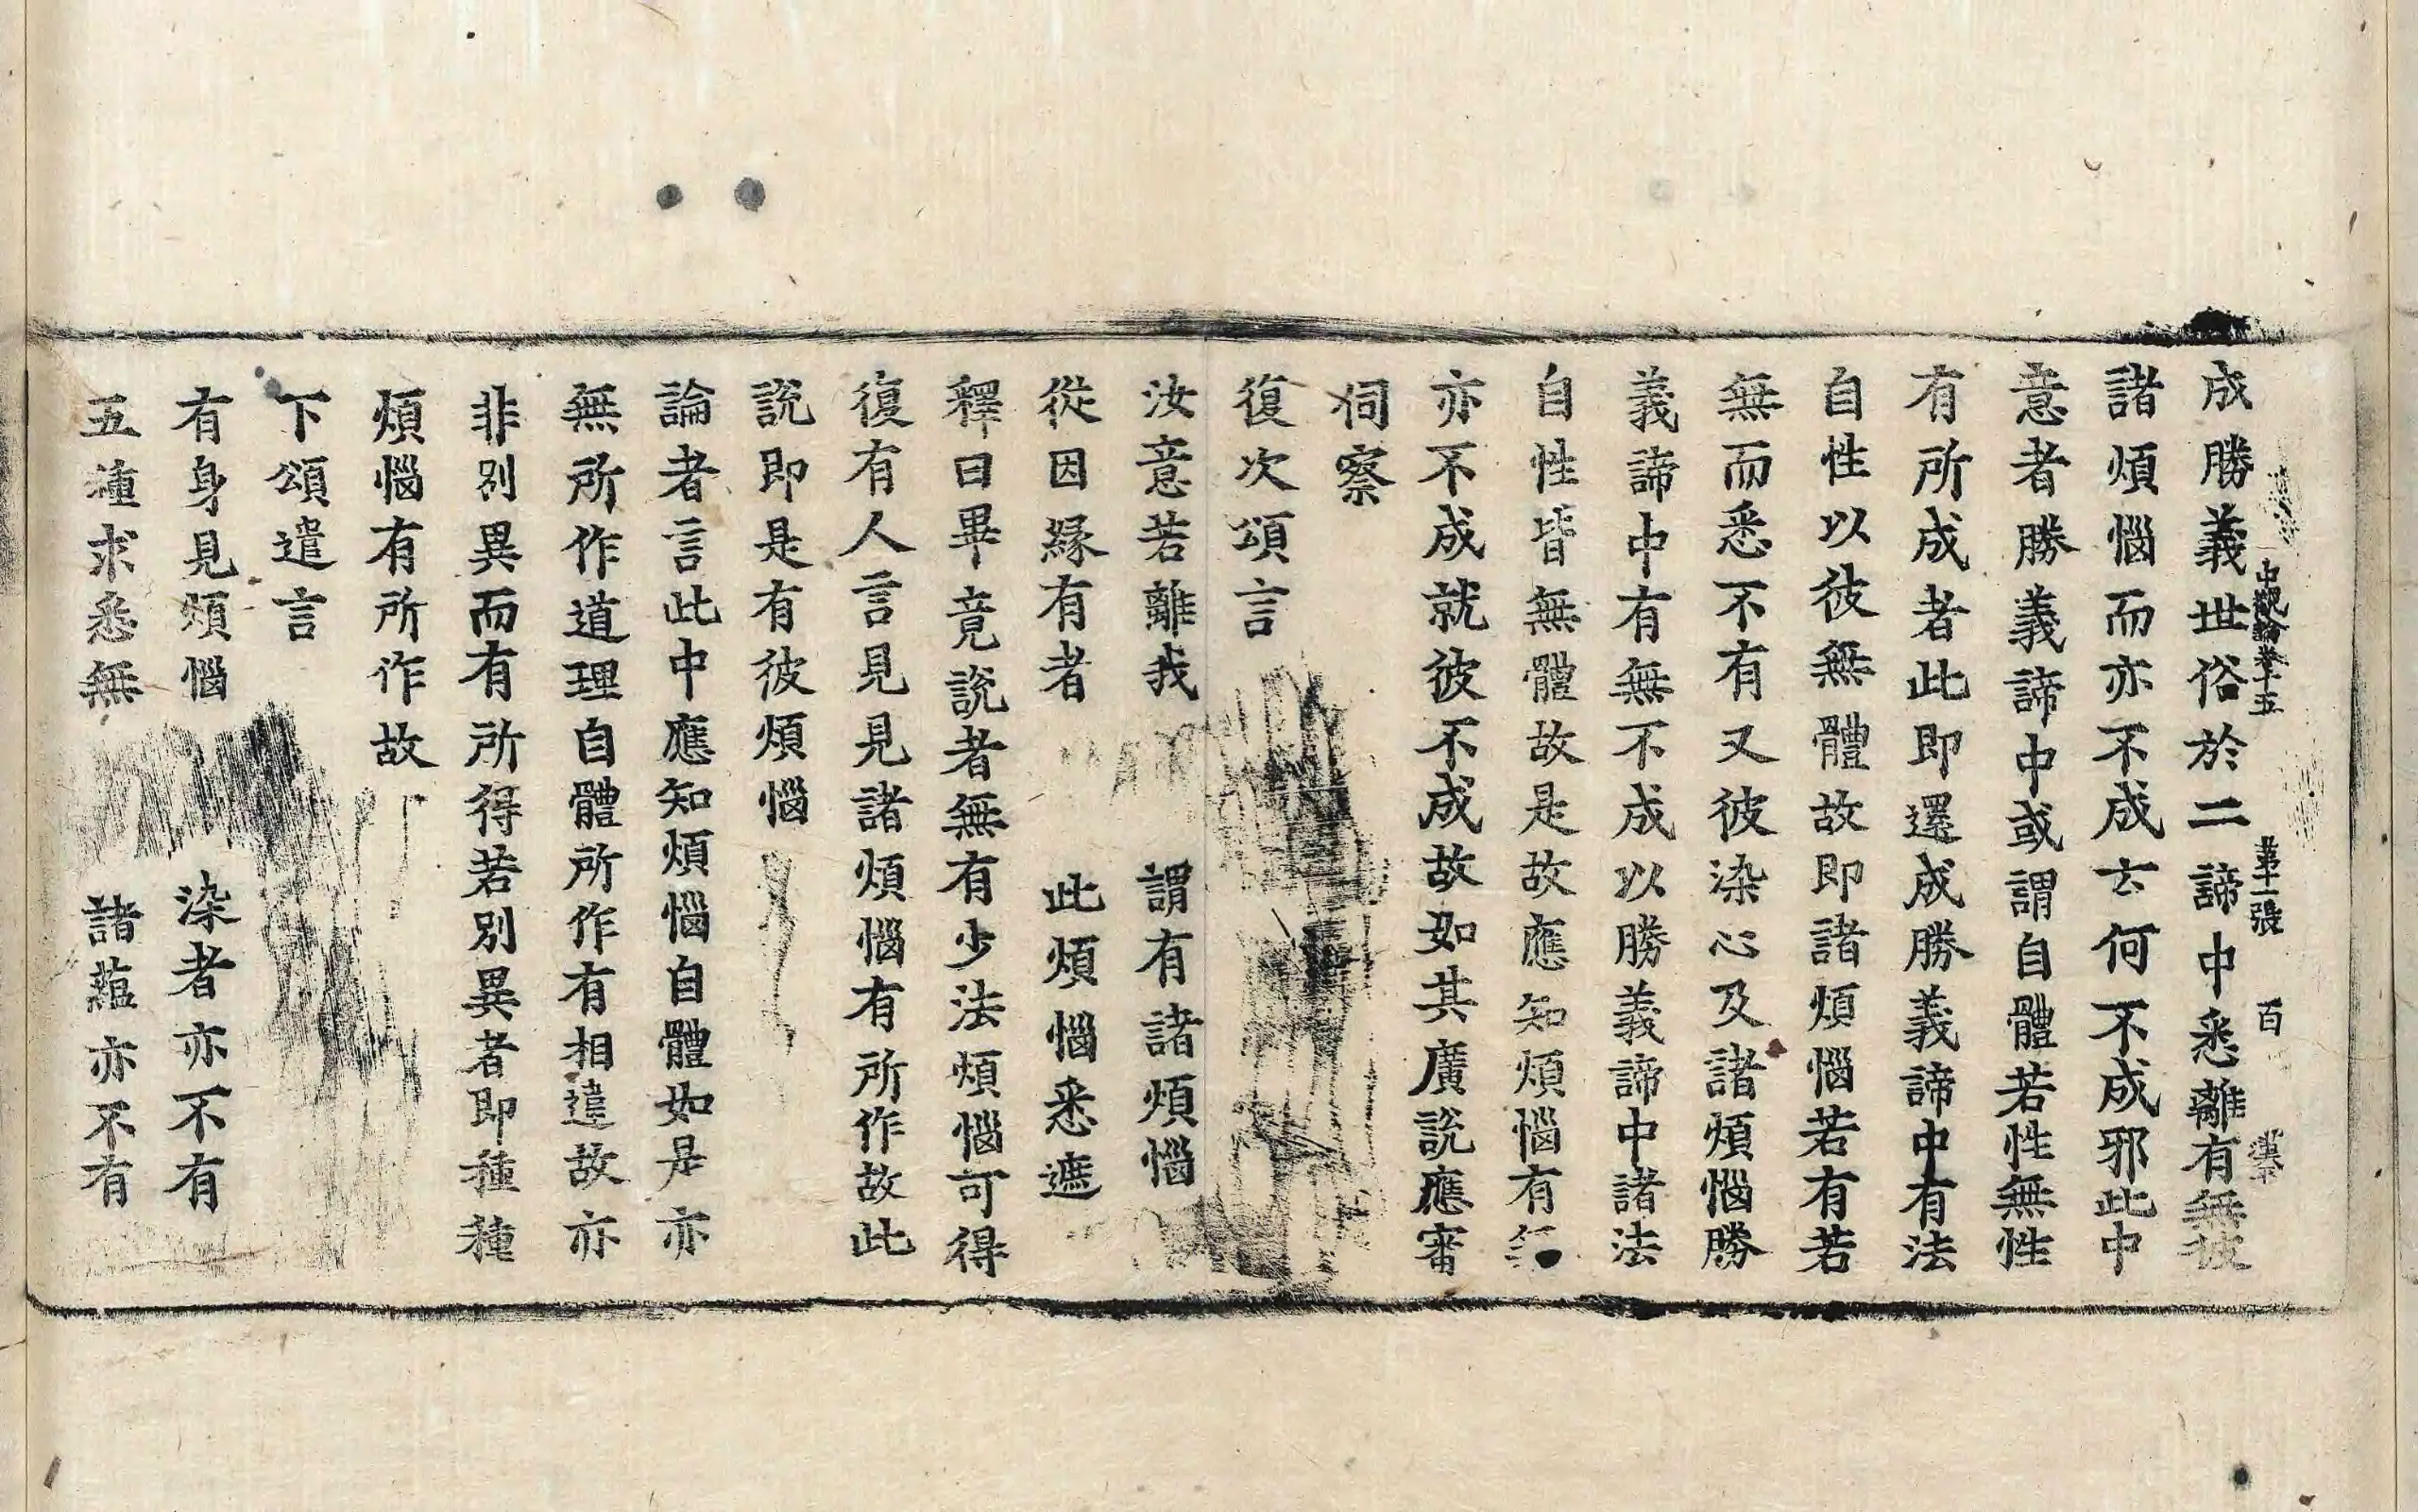 中觀論卷十五 第十一張 百
成勝義世俗於二諦中悉離有無彼
諸煩惱而亦不成云何不成邪此中
意者勝義諦中或謂自體若性無性
有所成者此即還成勝義諦中有法
自性以彼無體故即諸煩惱若有若
無而悉不有又彼染心及諸煩惱勝
義諦中有無不成以勝義諦中諸法
自性皆無體故是故應知煩惱有
亦不成就彼不成故如其廣說應審
伺察
復次頌言
汝意若離我 謂有諸煩惱
從因緣有者 此煩惱悉遮
釋曰畢竟說者無有少法煩惱可得
復有人言見見諸煩惱有所作故此
說即是有彼煩惱
論者言此中應知煩惱自體如是亦
無所作道理自體所作有相違故亦
非別異而有所得若別異者即種種
煩惱有所作故
下頌遣言
有身見煩惱 染者亦不有
五種求悉無 諸蘊亦不有